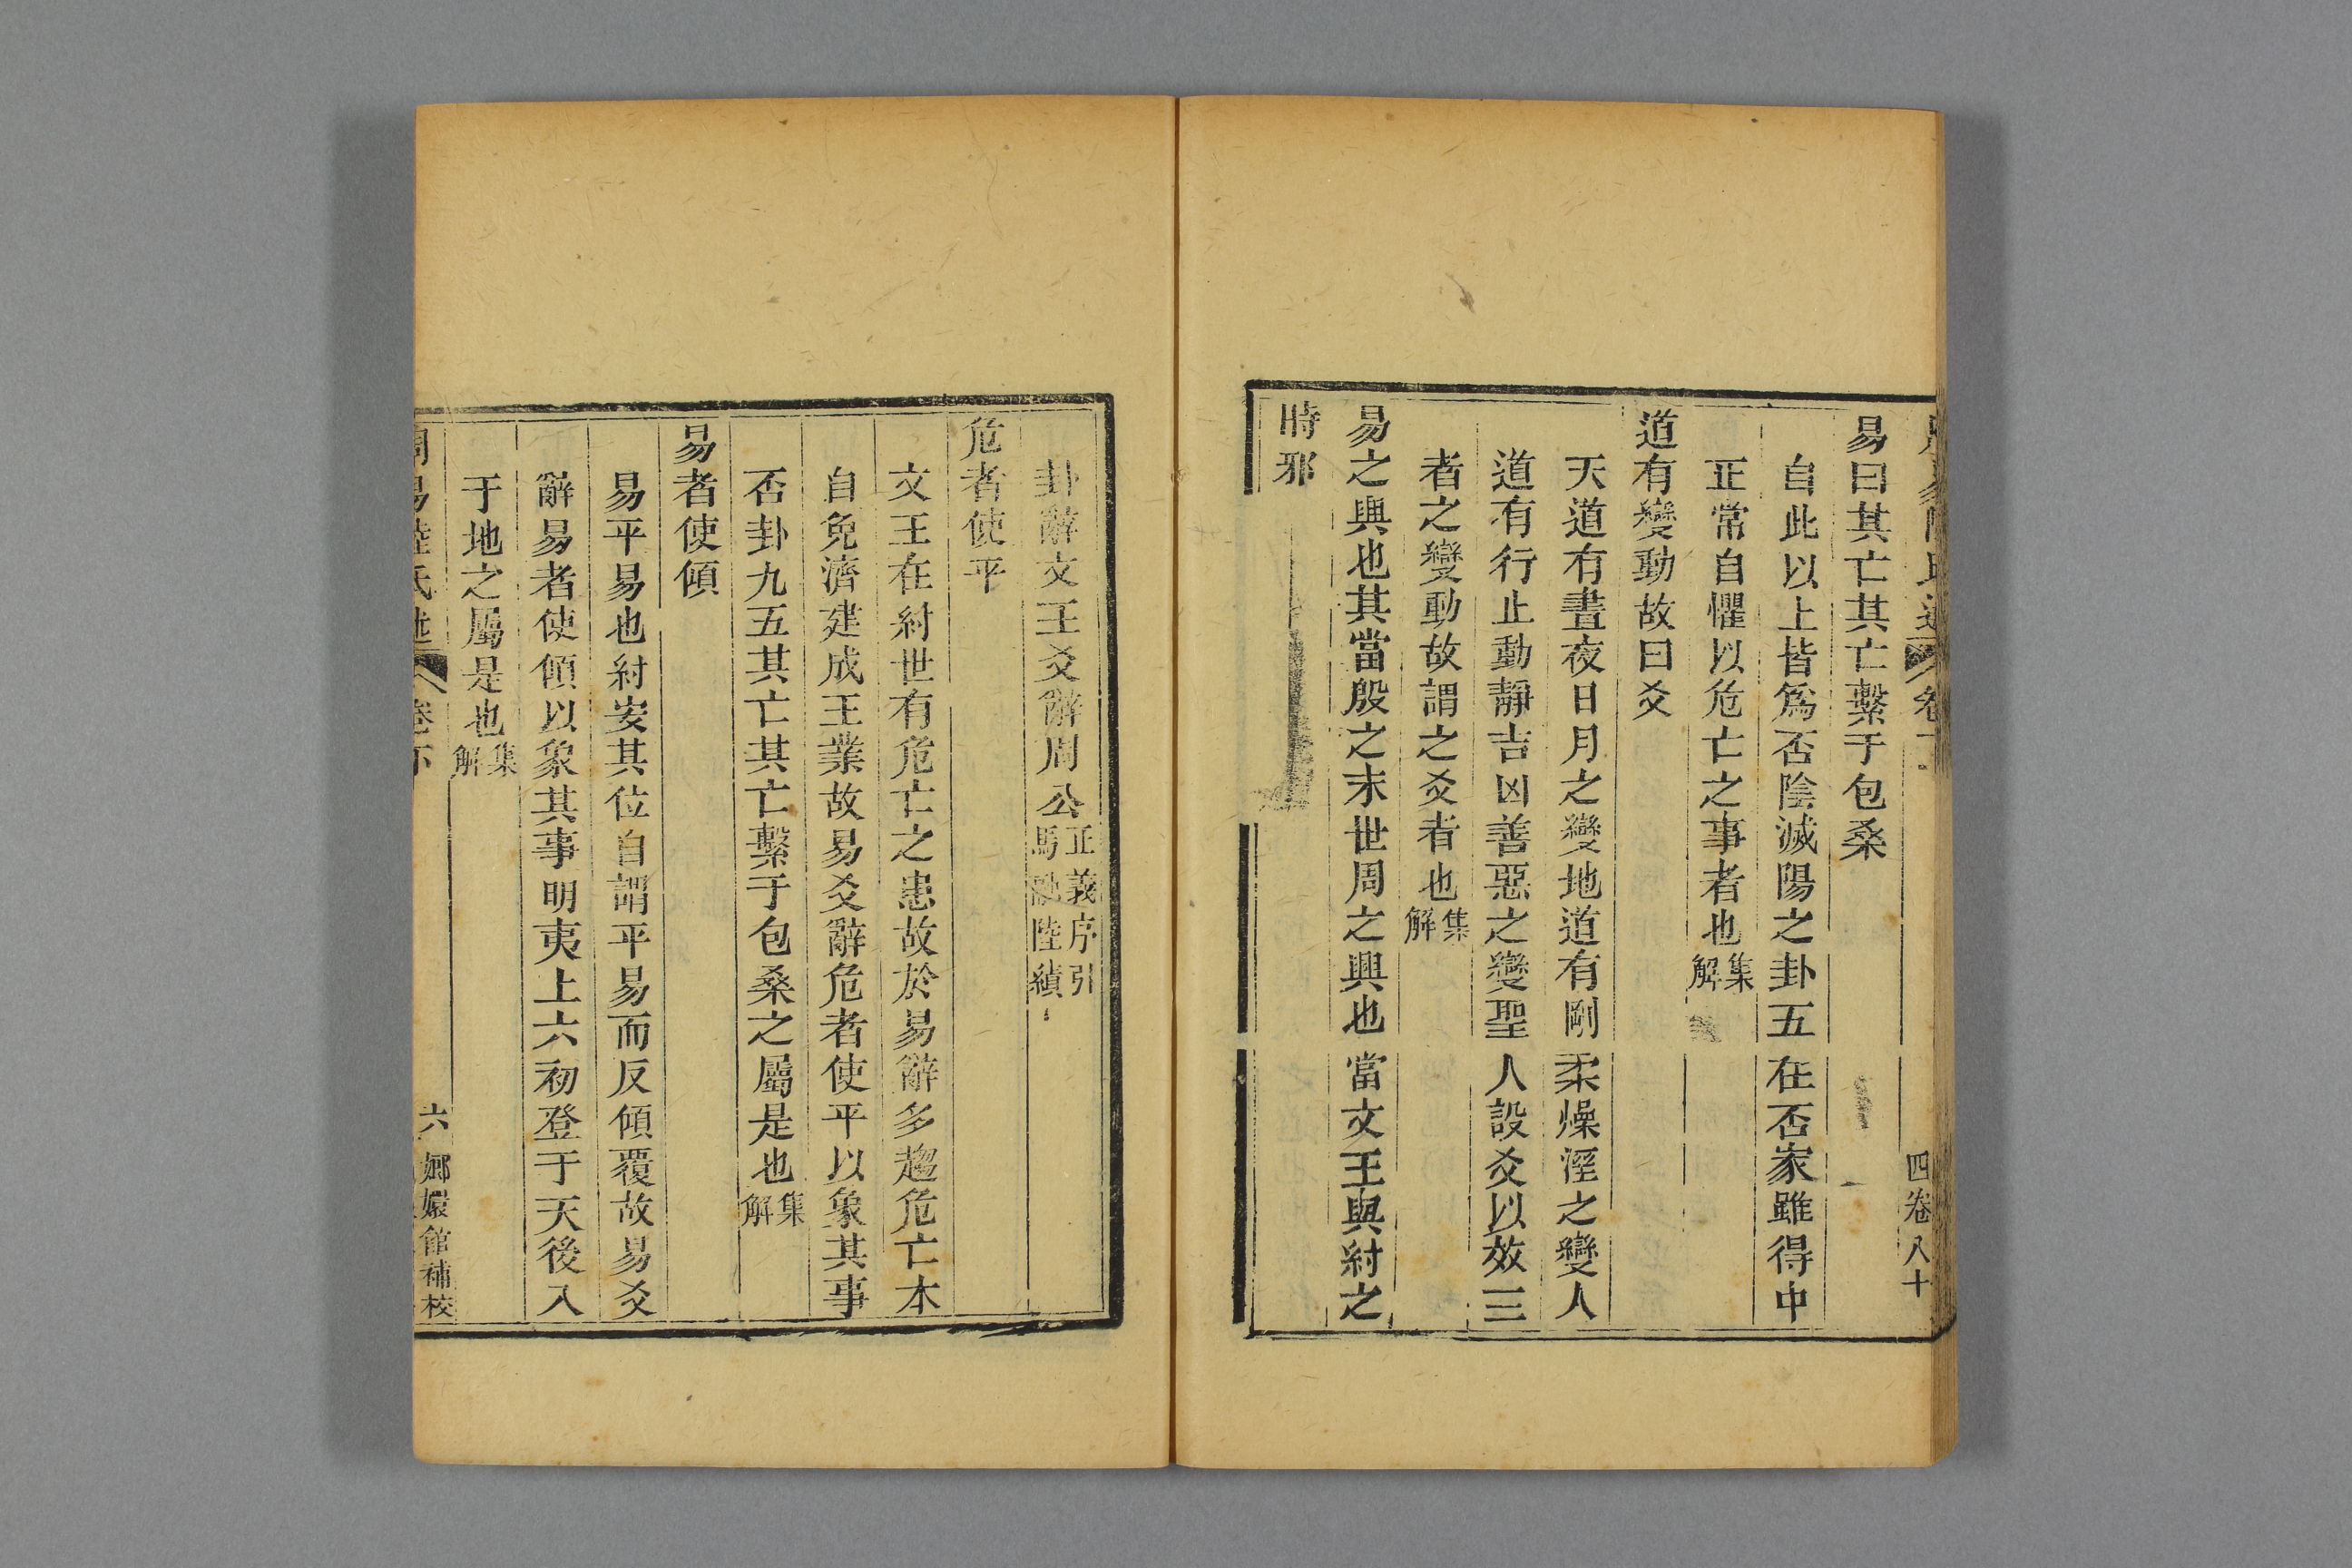 四卷八十
易曰其亡其亡繫于包桑
自此以上皆爲否陰滅陽之卦五在否家雖得中
正常自懼以危亡之事者也集解
道有變動故曰爻
天道有晝夜日月之變地道有剛柔燥溼之變人
道有行止動靜吉凶善惡之變聖人設爻以效三
者之變動故謂之爻者也集解
易之興也其當殷之末世周之興也當文王與紂之
時邪
卦辭文王爻辭周公正義序引馬融陸績
危者使平
文王在紂世有危亡之患故於易辭多趨危亡本
自免濟建成王業故易爻辭危者使平以象其事
否卦九五其亡其亡繫于包桑之屬是也集解
易者使傾
易平易也紂安其位自謂平易而反傾覆故易爻
辭易者使傾以象其事明夷上六初登于天後入
于地之屬是也集解
周易陸氏述 卷下 六 嫏嬛館補校